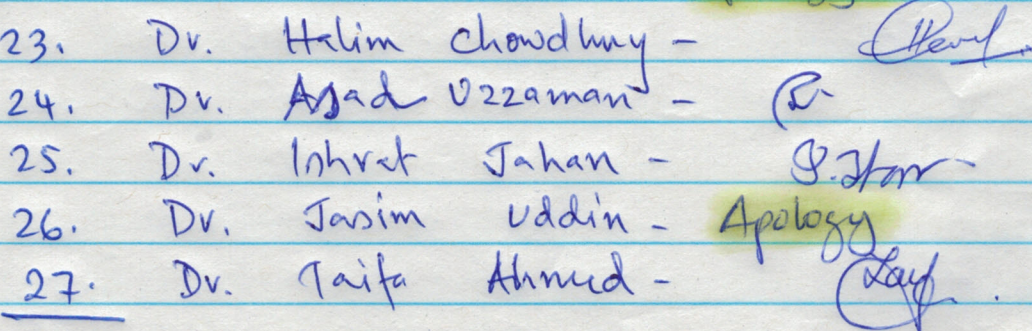 23. Dr. Halim Chowdhury -
24. Dr. Asad Uzzaman -
25. Dr. Ishrat Jahan -
26. Dr. Jasim Uddin - Apology
27. Dr. Taifa Ahmed -